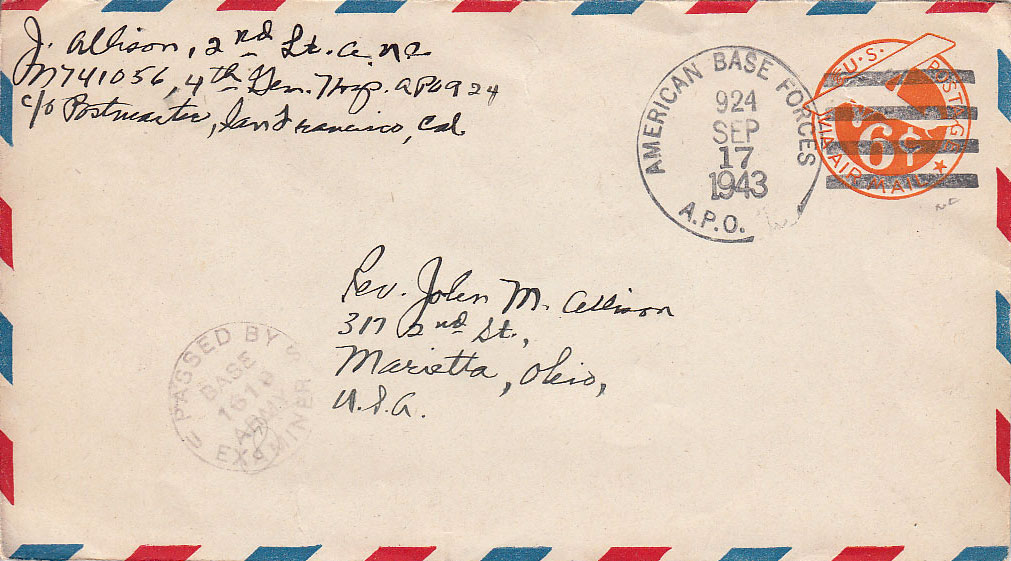 J. Allison, 2nd Lt. A.N.C.
N741056, 4th Gen. Hosp. APO 924
c/o Postmaster, San Francisco, Cal.
AMERICAN BASE FORCES
924
SEP
17
1943
A.P.O.
U.S. POSTAGE
6¢
VIA AIR MAIL
Rev. John M. Allison
317 2nd St.,
Marietta, Ohio,
U.S.A.
PASSED BY
BASE
ARMY
EXAMINER